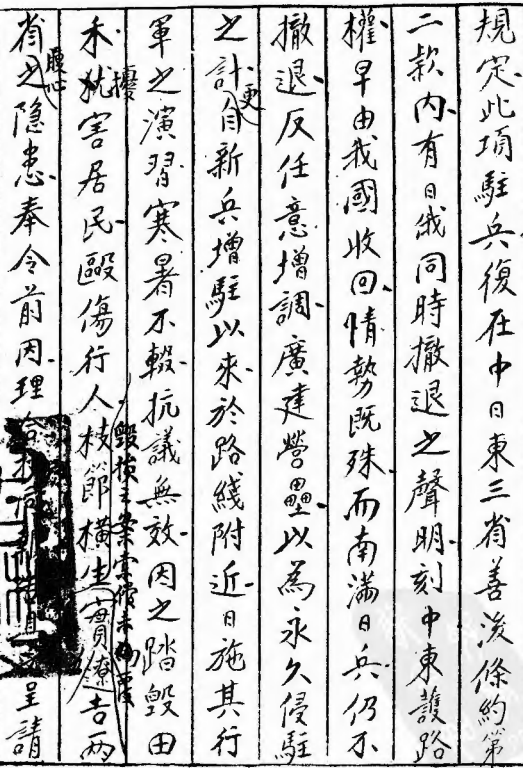 規定此項駐兵復在中日東三省善後條約第
二款內有日俄同時撤退之聲明刻中東護路
權早由我國收回情勢既殊而南滿日兵仍不
撤退反任意增調廣建營壘以為永久侵駐
之計更自新兵增駐以來於路綫附近日施其行
軍之演習寒暑不輟抗議無效因之踏毀田
禾擾害居民毆傷行人毀損之案索償未
枝節橫生實遼吉兩
省腹心之隱患奉令前因理合
呈請